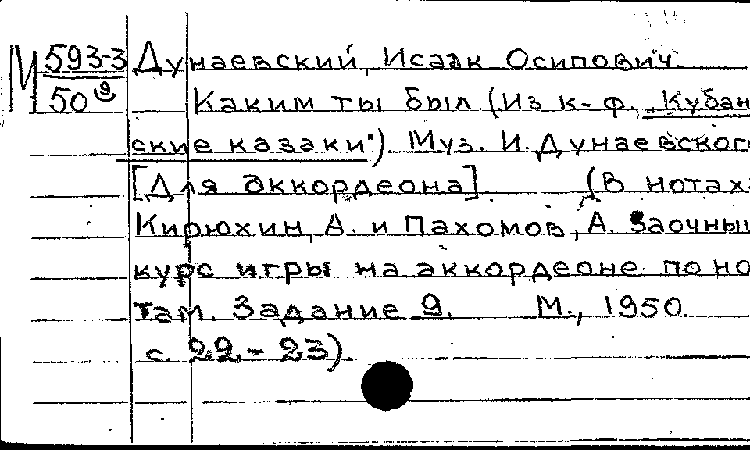 М 593-3 Дунаевский, Исаак Осипович.
50 9 Каким ты был (Из к-ф. „Кубан
ские казаки") Муз. И. Дунаевског
[Для аккордеона] (В нотах:
Кирюхин, А. и Пахомов, А. Заочный
курс игры на аккордеоне по но
там. Задание 9. М., 1950.
с 22-23)